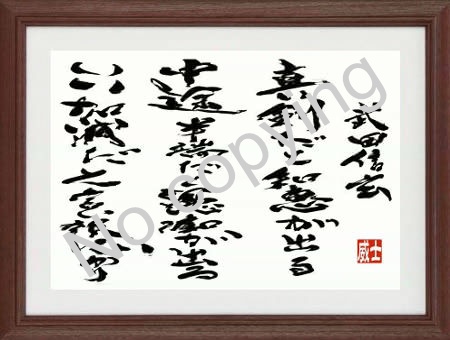 武田信玄
真剣だと知恵が出る
中途半端だと愚痴が出る
いい加減だと言い訳
威士
No copying